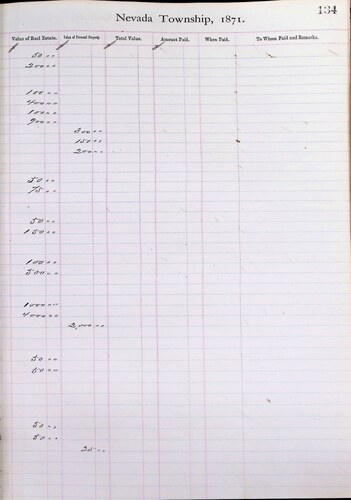 134
Nevada Township, 1871.
Value of Real Estate. Value of Personal Property. Total Value. Amount Paid. When Paid. To Whom Paid and Remarks.
50 00
200 00
100 00
400 00
100 00
900 00
300 00
150 00
200 00
50 00
75 00
50 00
150 00
100 00
500 00
1000 00
400 00
2,000 00
50 00
50 00
50 00
50 00
25 00